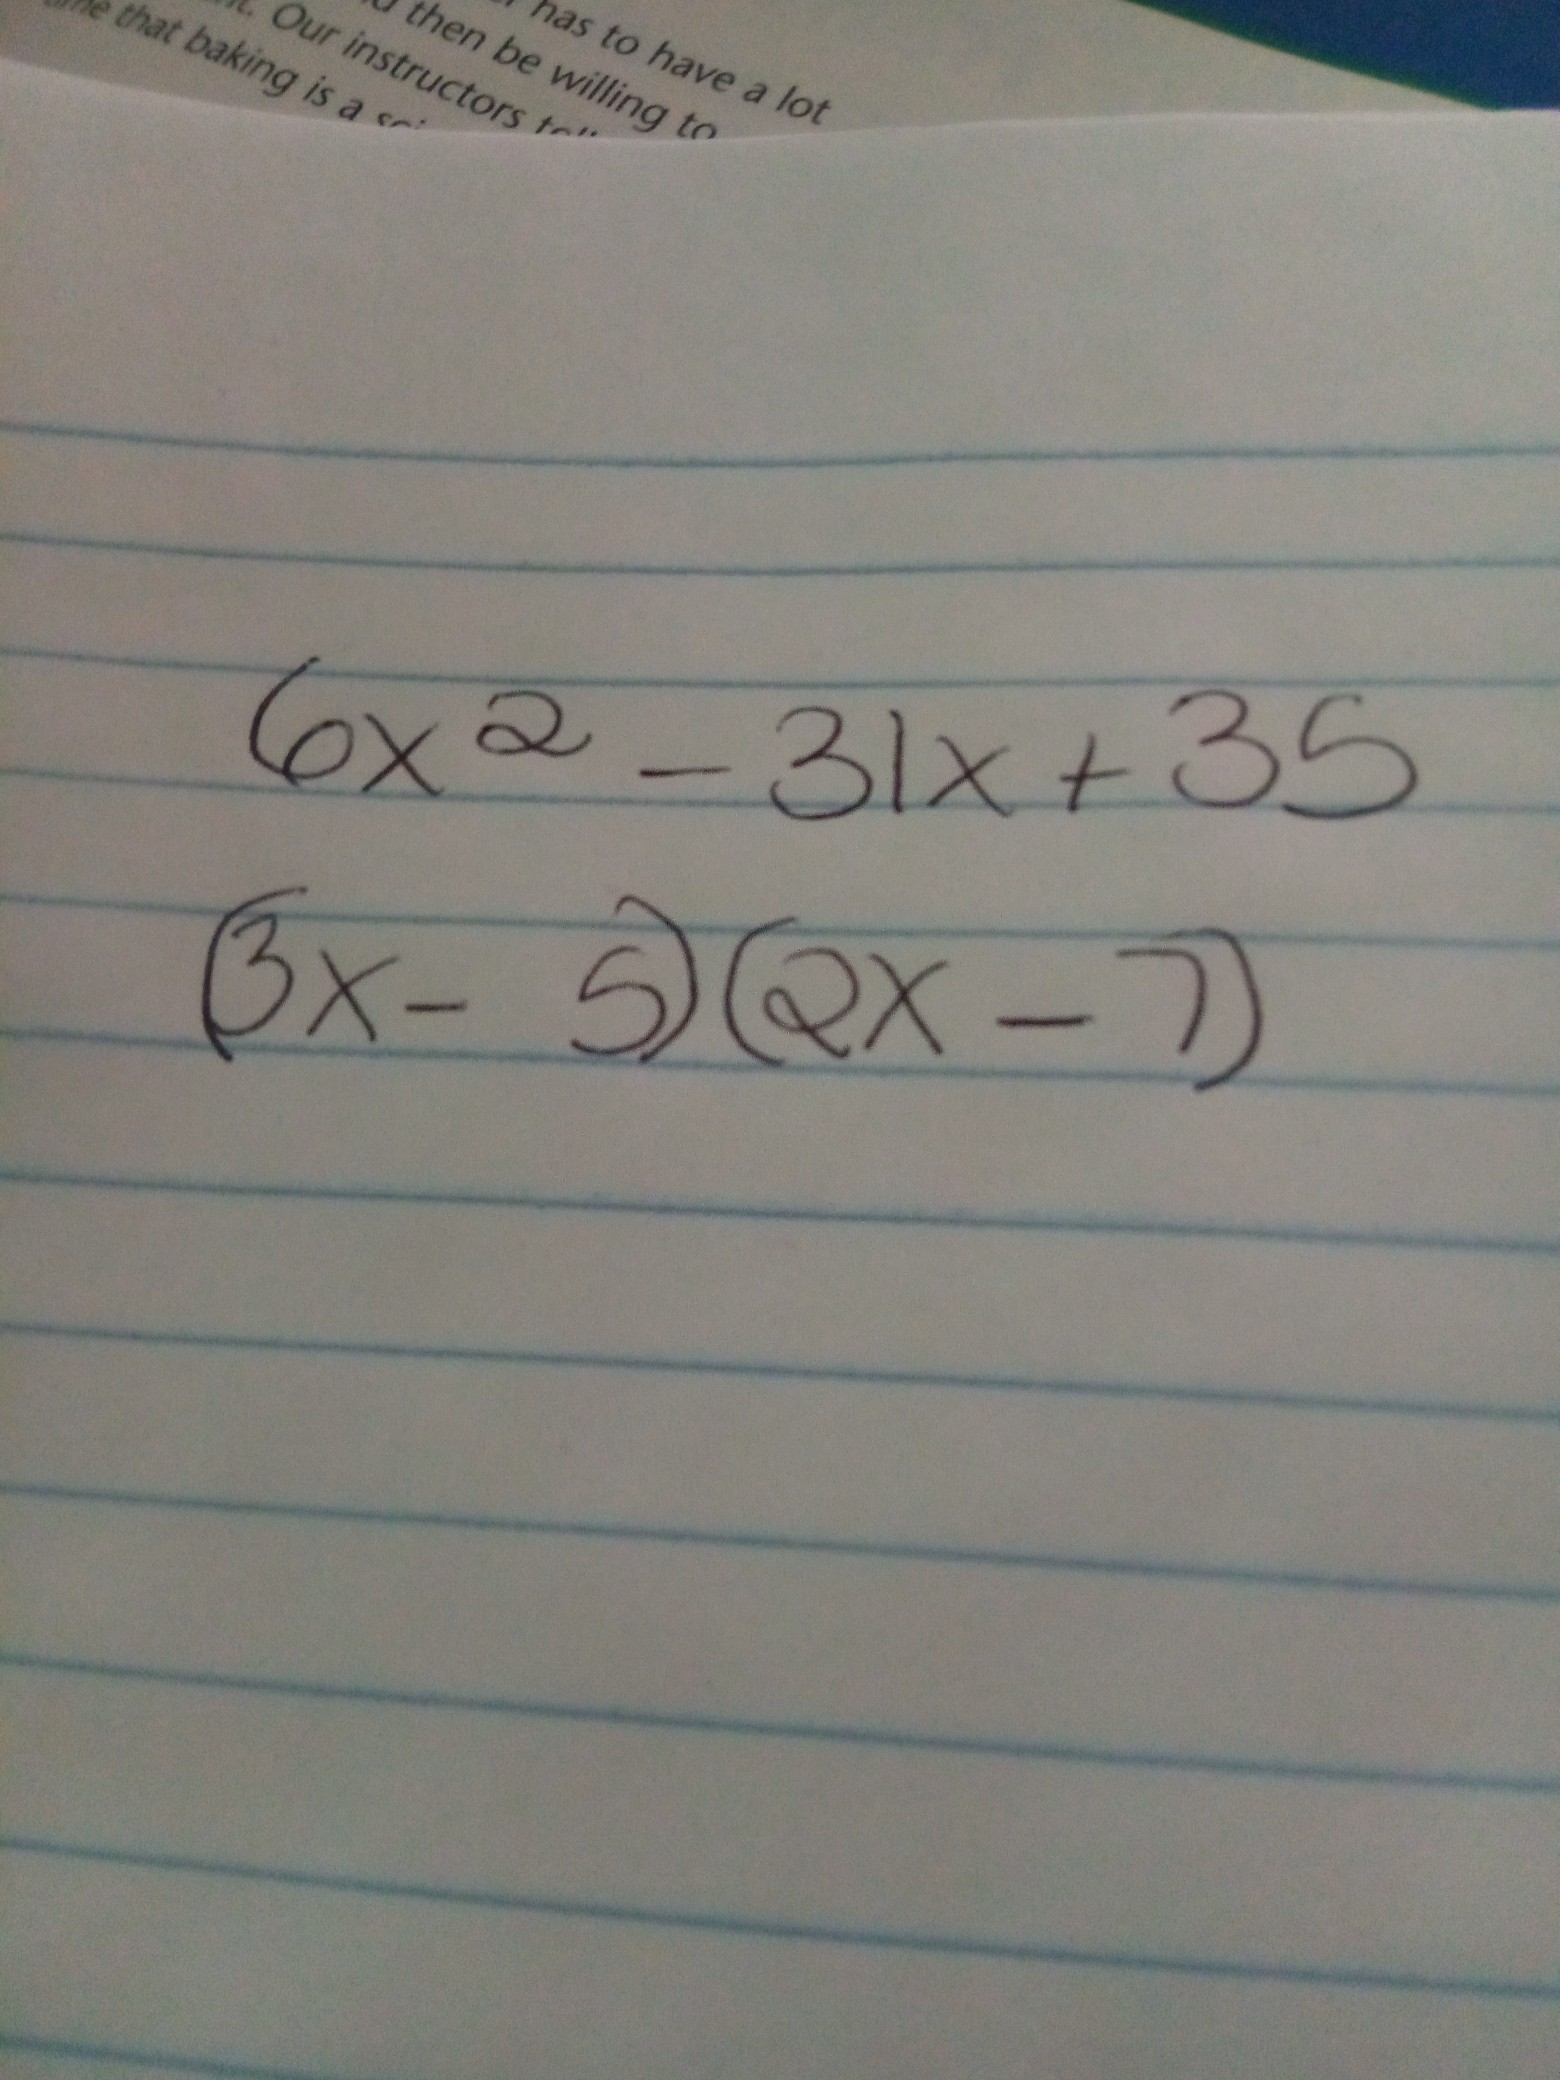 has to have a lot
then be willing to
Our instructors
that baking is a
6x² - 31x + 35
(3x - 5)(2x - 7)